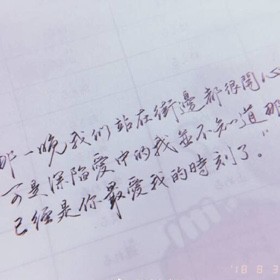 那一晚我们站在街邊都很開心
可是深陷愛中的我並不知道那
已經是你最愛我的時刻了。”
'18 8 3